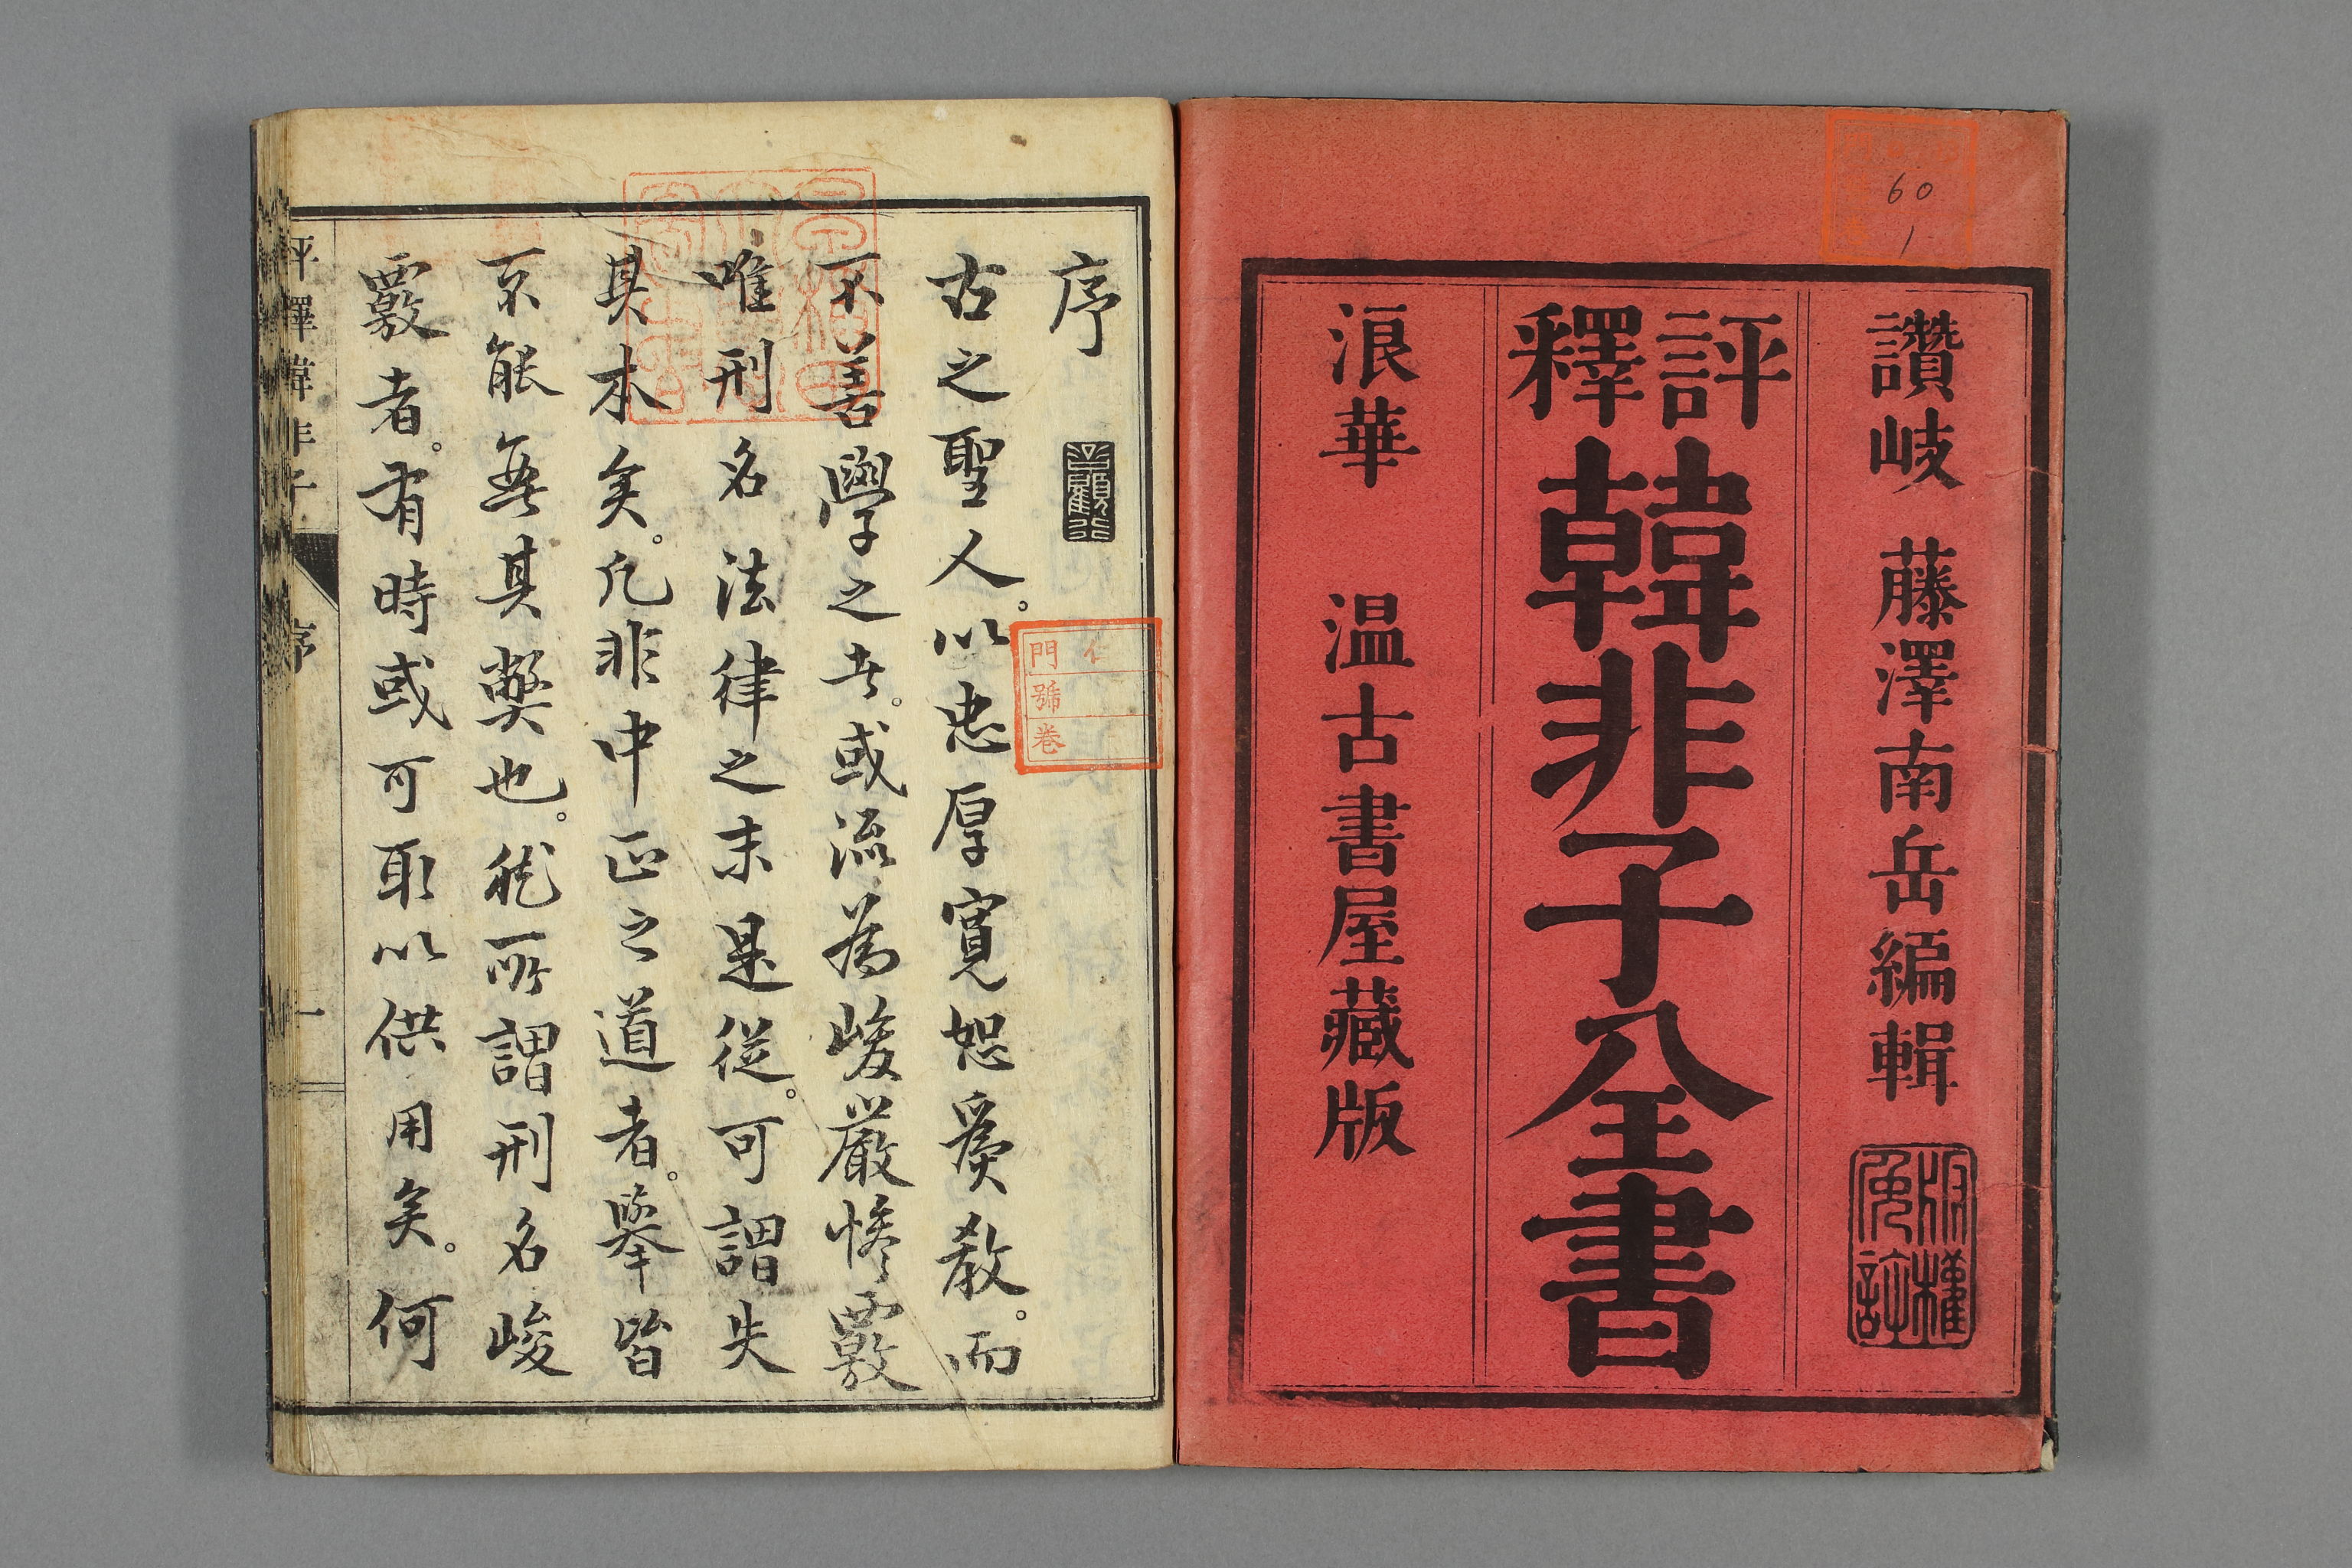 60
1
讚岐 藤澤南岳編輯
版權免許
評釋 韓非子全書
浪華 温古書屋藏版
序
古之聖人。以忠厚寬恕爲教。而
不善學之者。或流爲峻嚴慘覈
唯刑名法律之末是從。可謂失
其本矣。凡非中正之道者。擧皆
不能無其弊也。然所謂刑名峻
覈者。有時或可取以供用矣。何
門
號
卷
評釋韓非子
序
一